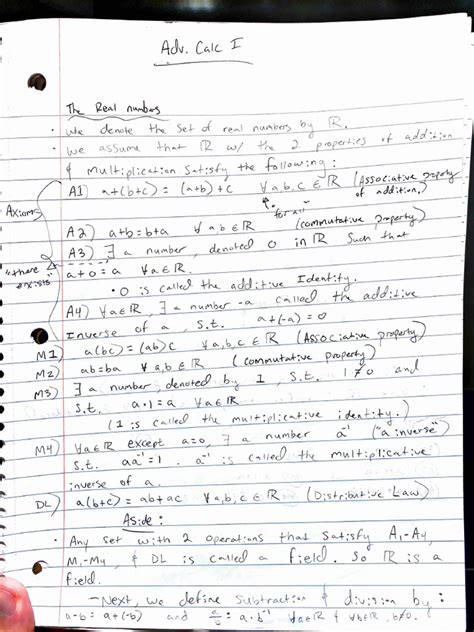 Adv. Calc I
The Real numbers
• we denote the set of real numbers by ℝ.
• we assume that ℝ w/ the 2 properties of addition
& multiplication satisfy the following:
A1) a+(b+c) = (a+b)+c ∀a,b,c ∈ ℝ (Associative property
of addition.)
Axioms
for all
A2) a+b=b+a ∀a,b ∈ ℝ (commutative property)
A3) ∃ a number, denoted 0 in ℝ such that
"there exists"
a+0=a ∀a∈ℝ
• 0 is called the additive Identity.
A4) ∀a∈ℝ, ∃ a number -a called the additive
Inverse of a, s.t. a+(-a)=0
M1) a(bc)=(ab)c ∀a,b,c∈ℝ (Associative property)
M2) ab=ba ∀a,b∈ℝ (commutative property)
M3) ∃ a number, denoted by 1, s.t. 1≠0 and
s.t. a·1=a ∀a∈ℝ
(1 is called the multiplicative identity.)
M4) ∀a∈ℝ except a=0, ∃ a number a⁻¹ ("a inverse")
s.t. aa⁻¹=1. a⁻¹ is called the multiplicative
inverse of a.
DL) a(b+c)=ab+ac ∀a,b,c∈ℝ (Distributive Law)
Aside:
• Any set with 2 operations that satisfy A₁-A₄,
M₁-M₄, & DL is called a field. So ℝ is a
field.
- Next, we define subtraction & division by:
a-b=a+(-b) and a/b=a·b⁻¹ ∀a∈ℝ & ∀b∈ℝ, b≠0.